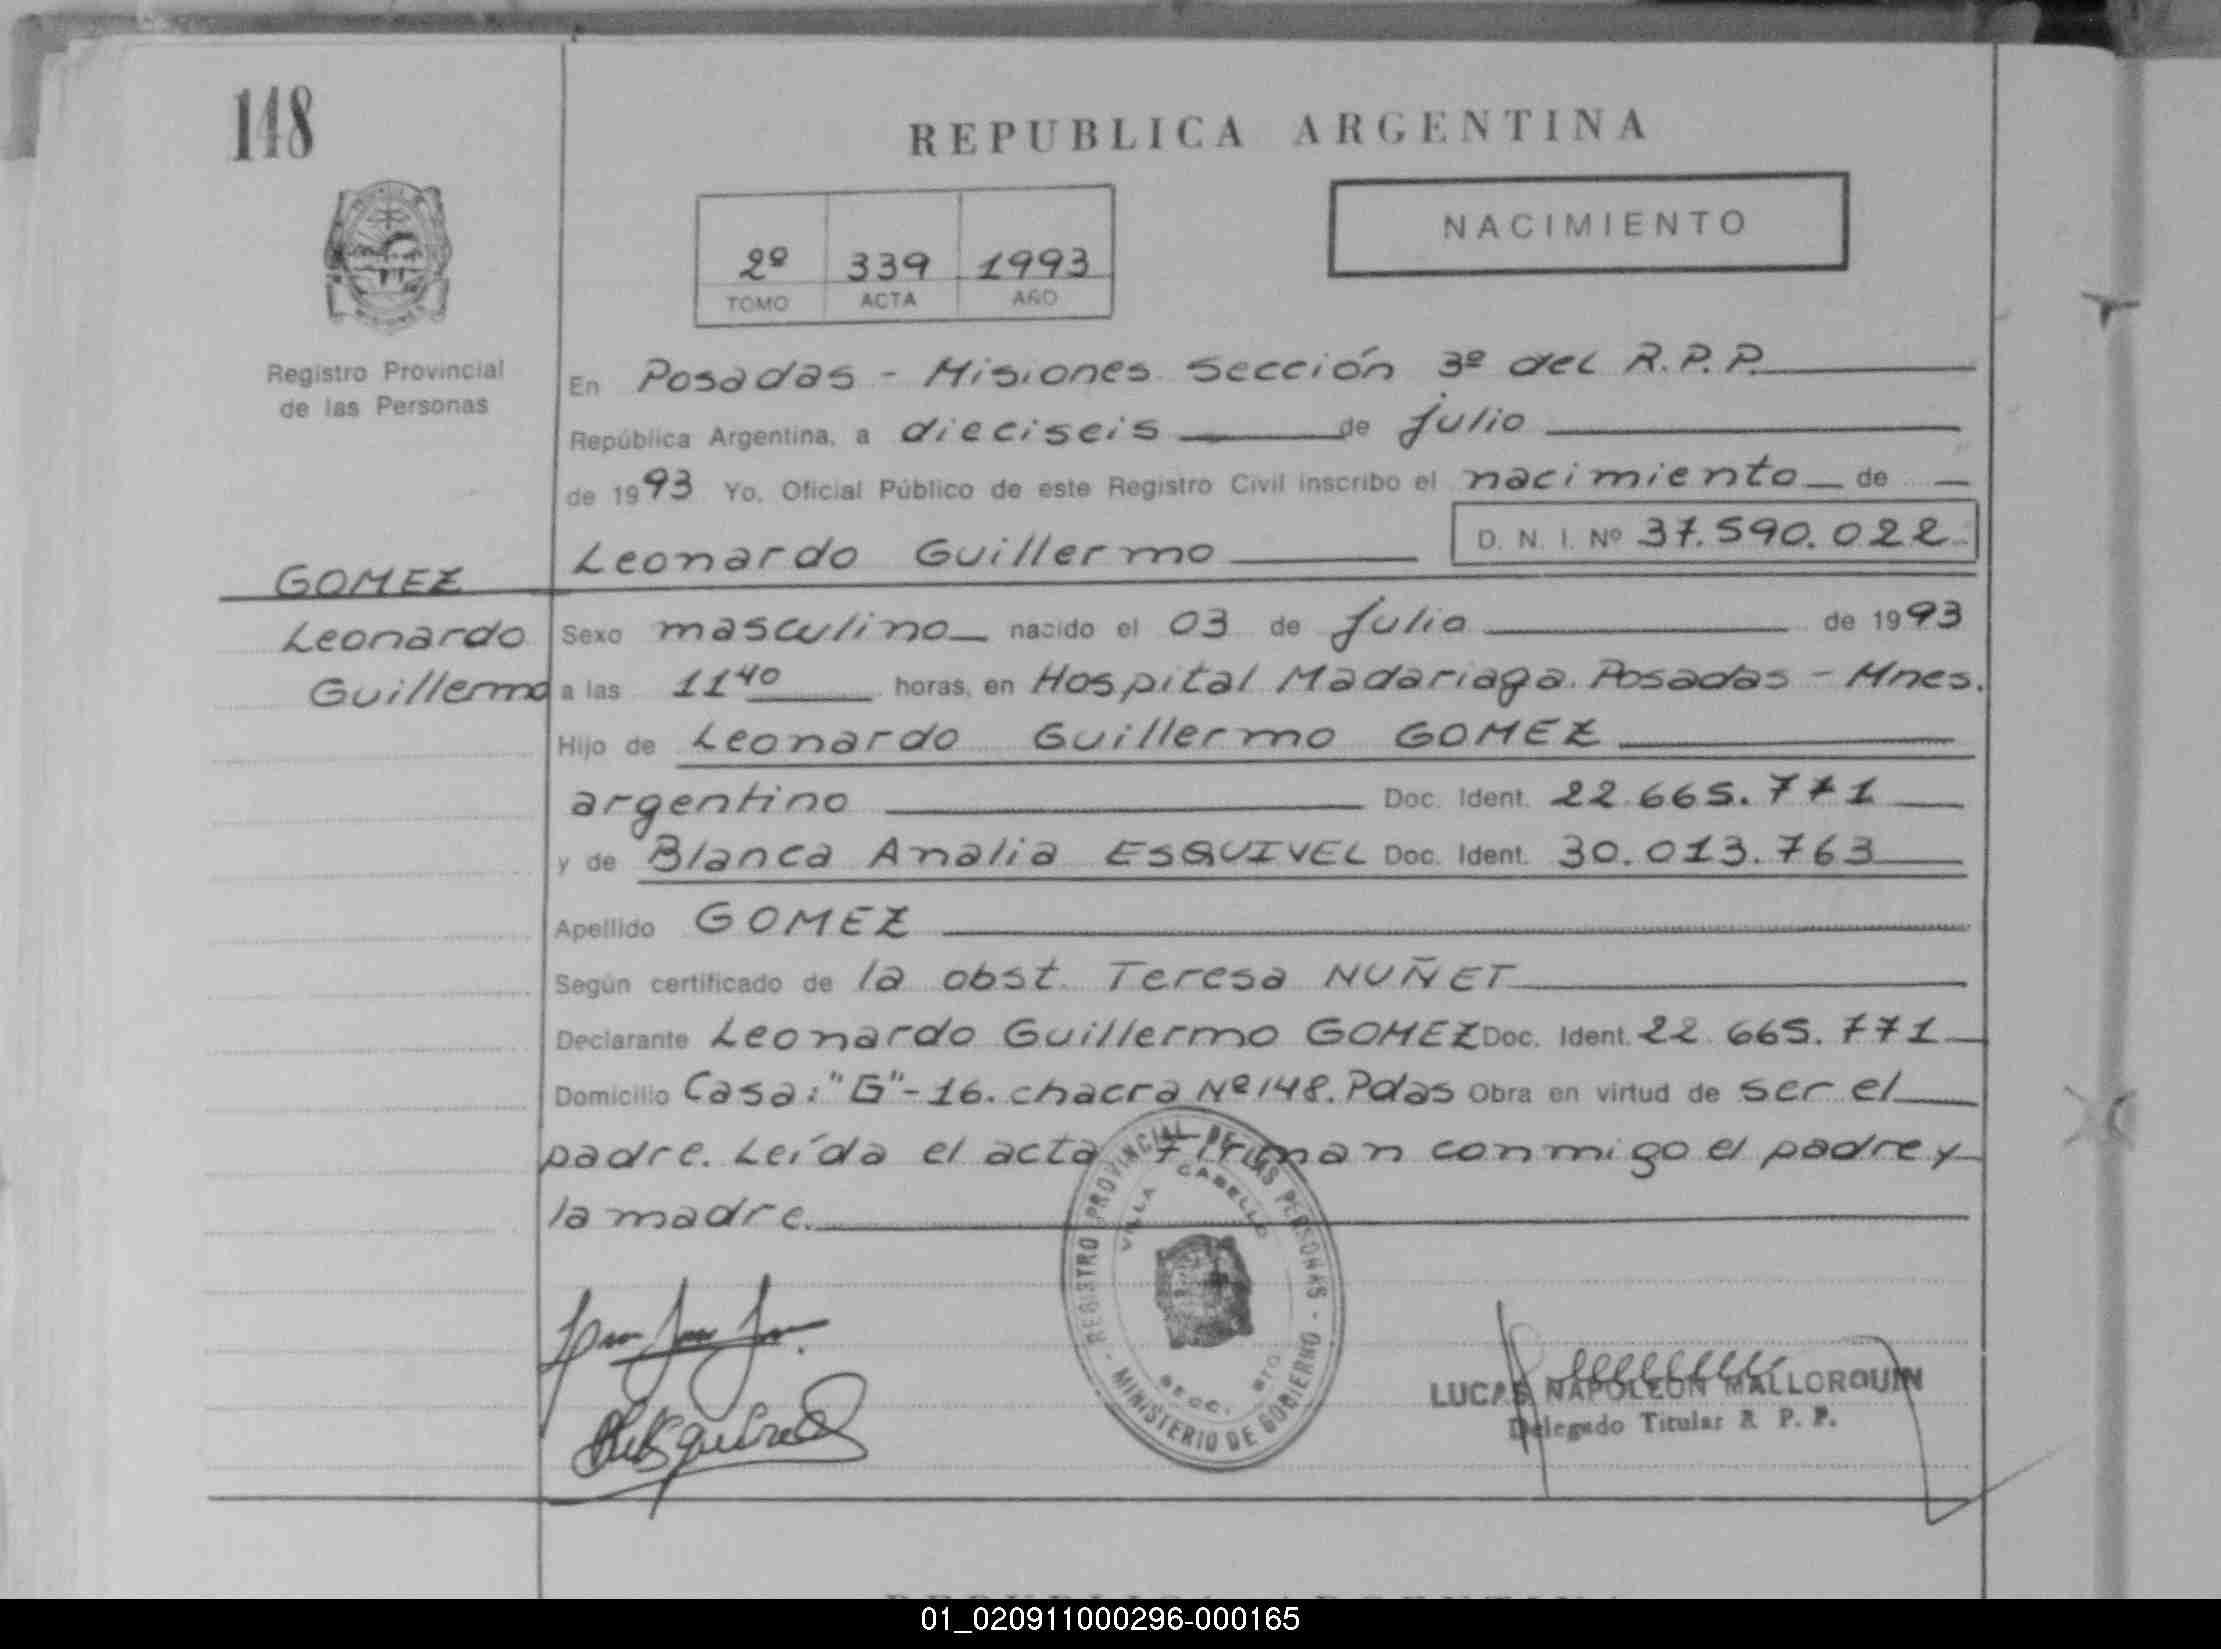 148
REPUBLICA ARGENTINA
NACIMIENTO
2º 339 1993
TOMO ACTA AÑO
Registro Provincial
de las Personas
En Posadas - Misiones Sección 3º del R.P.P.
República Argentina, a dieciseis de julio
de 1993 Yo, Oficial Público de este Registro Civil inscribo el nacimiento de
Leonardo Guillermo D. N. I. Nº 37.590.022
GOMEZ
Leonardo
Guillermo
Sexo masculino nacido el 03 de julio de 1993
a las 11 40 horas, en Hospital Madariaga. Posadas - Mnes.
Hijo de Leonardo Guillermo GOMEZ
argentino Doc. Ident. 22.665.771
y de Blanca Analia ESQUIVEL Doc. Ident. 30.013.763
Apellido GOMEZ
Según certificado de la obst. Teresa NUÑET
Declarante Leonardo Guillermo GOMEZ Doc. Ident. 22.665.771
Domicilio Casa: "G" - 16. chacra Nº 148. Pdas Obra en virtud de ser el
padre. Leída el acta Firman conmigo el padre y
la madre.
REGISTRO PROVINCIAL DE LAS PERSONAS - MINISTERIO DE GOBIERNO -
VILLA CABELLO
SECC.
LUCAS NAPOLEON MALLORQUIN
Delegado Titular R. P. P.
01_020911000296-000165